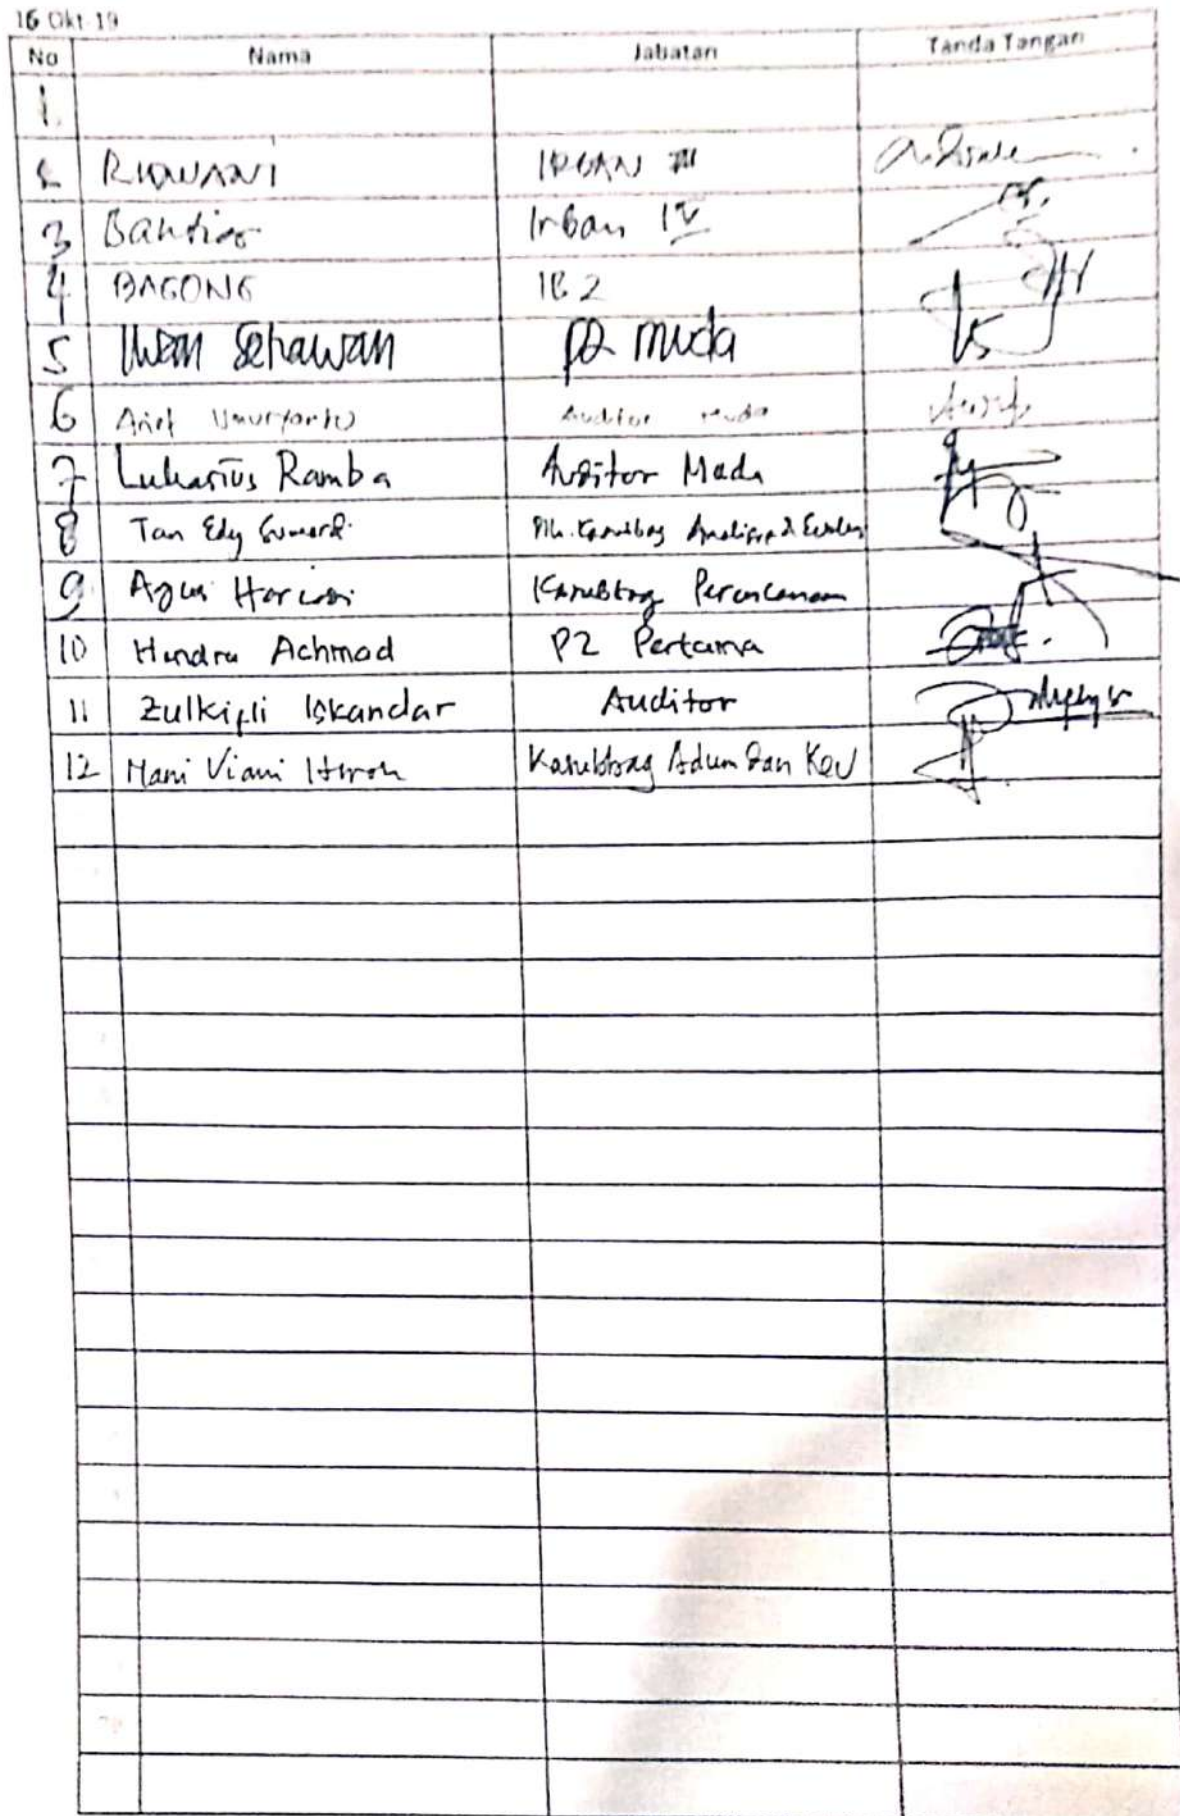 16 Okt 19
No Nama Jabatan Tanda Tangan
1.
2 RIDWANI IRBAN III
3 Bahtiar Irban IV
4 BAGONG IB 2
5 Iwan Setiawan P2 Muda
6 Arief Auditor Muda
7 Lukasius Ramba Auditor Muda
8 Tan Edy Plh. Kasubbag
9 Agus Kasubbag Perencanaan
10 Hendra Achmad P2 Pertama
11 Zulkifli Iskandar Auditor
12 Hani Viani Kasubbag Adum dan Keu